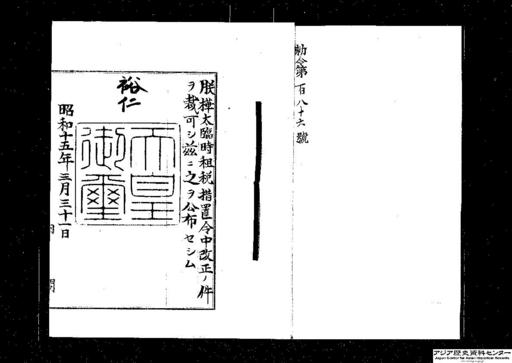 勅令第百八十六號
朕樺太臨時租税措置令中改正ノ件
ヲ裁可シ茲ニ之ヲ公布セシム
裕仁
天皇
御璽
昭和十五年三月三十一日
内閣
アジア歴史資料センター
Japan Center for Asian Historical Records